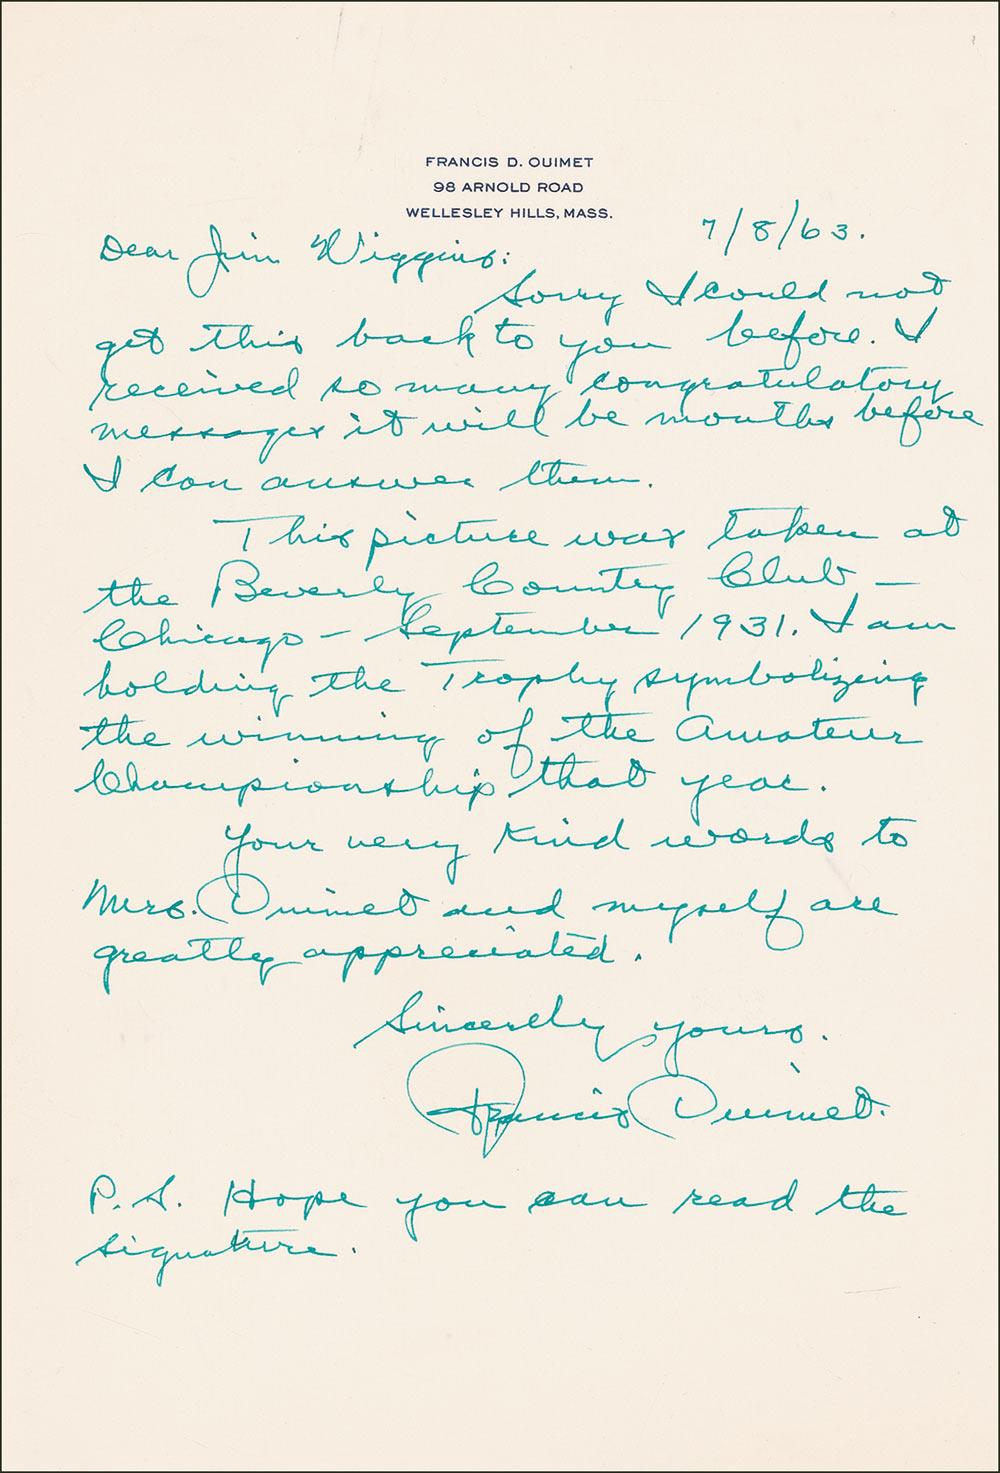 FRANCIS D. OUIMET
98 ARNOLD ROAD
WELLESLEY HILLS, MASS.
7/8/63.
Dear Jim Wiggins:
Sorry I could not
get this back to you before. I
received so many congratulatory
messages it will be months before
I can answer them.
This picture was taken at
the Beverly Country Club –
Chicago – September 1931. I am
holding the Trophy symbolizing
the winning of the Amateur
Championship that year.
Your very kind words to
Mrs. Ouimet and myself are
greatly appreciated.
Sincerely yours.
Francis Ouimet.
P.S. Hope you can read the
signature.